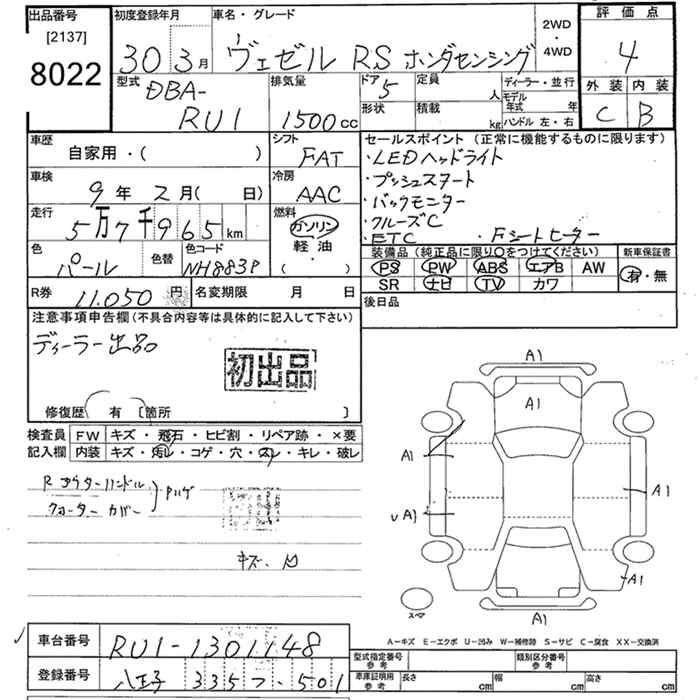 出品番号
[2137]
8022
初度登録年月
30 3月
車名・グレード
ヴェゼル RS ホンダセンシング
2WD
・
4WD
評価点
4
外装 内装
C B
型式
DBA-
RU1
排気量
1500cc
ドア
5
定員
人
形状
積載
kg
ディーラー・並行
モデル年式 年
ハンドル 左・右
車歴
自家用・( )
シフト
FAT
車検
9年 2月( 日)
冷房
AAC
走行
5万7千965km
燃料
ガソリン
軽油
・( )
色
パール
色替
色コード
NH883P
R券
11,050円
名変期限 月 日
セールスポイント (正常に機能するものに限ります)
・LEDヘッドライト
・プッシュスタート
・バックモニター
・クルーズC
・ETC ・Fシートヒーター
装備品(純正品に限り○をつけてください)
PS PW ABS エアB AW
SR ナビ TV カワ
新車保証書
有・無
後日品
注意事項申告欄(不具合内容等は具体的に記入して下さい)
ディーラー出品
初出品
修復歴 有 [箇所 ]
検査員
記入欄
FW キズ・飛石・ヒビ割・リペア跡・×要
内装 キズ・汚れ・コゲ・穴・スレ・キレ・破レ
R アウターハンドル
クォーター カバー
キズ、凹
A1
A1
A1
A1
A1
A1
A1
スペア
A−キズ E−エクボ U−凹み W−補修跡 S−サビ C−腐食 XX−交換済
車台番号
RU1-1301148
登録番号
八王子 335 フ 501
型式指定番号
参考
類別区分番号
参考
車庫証明用
参考
長さ cm
幅 cm
高さ cm